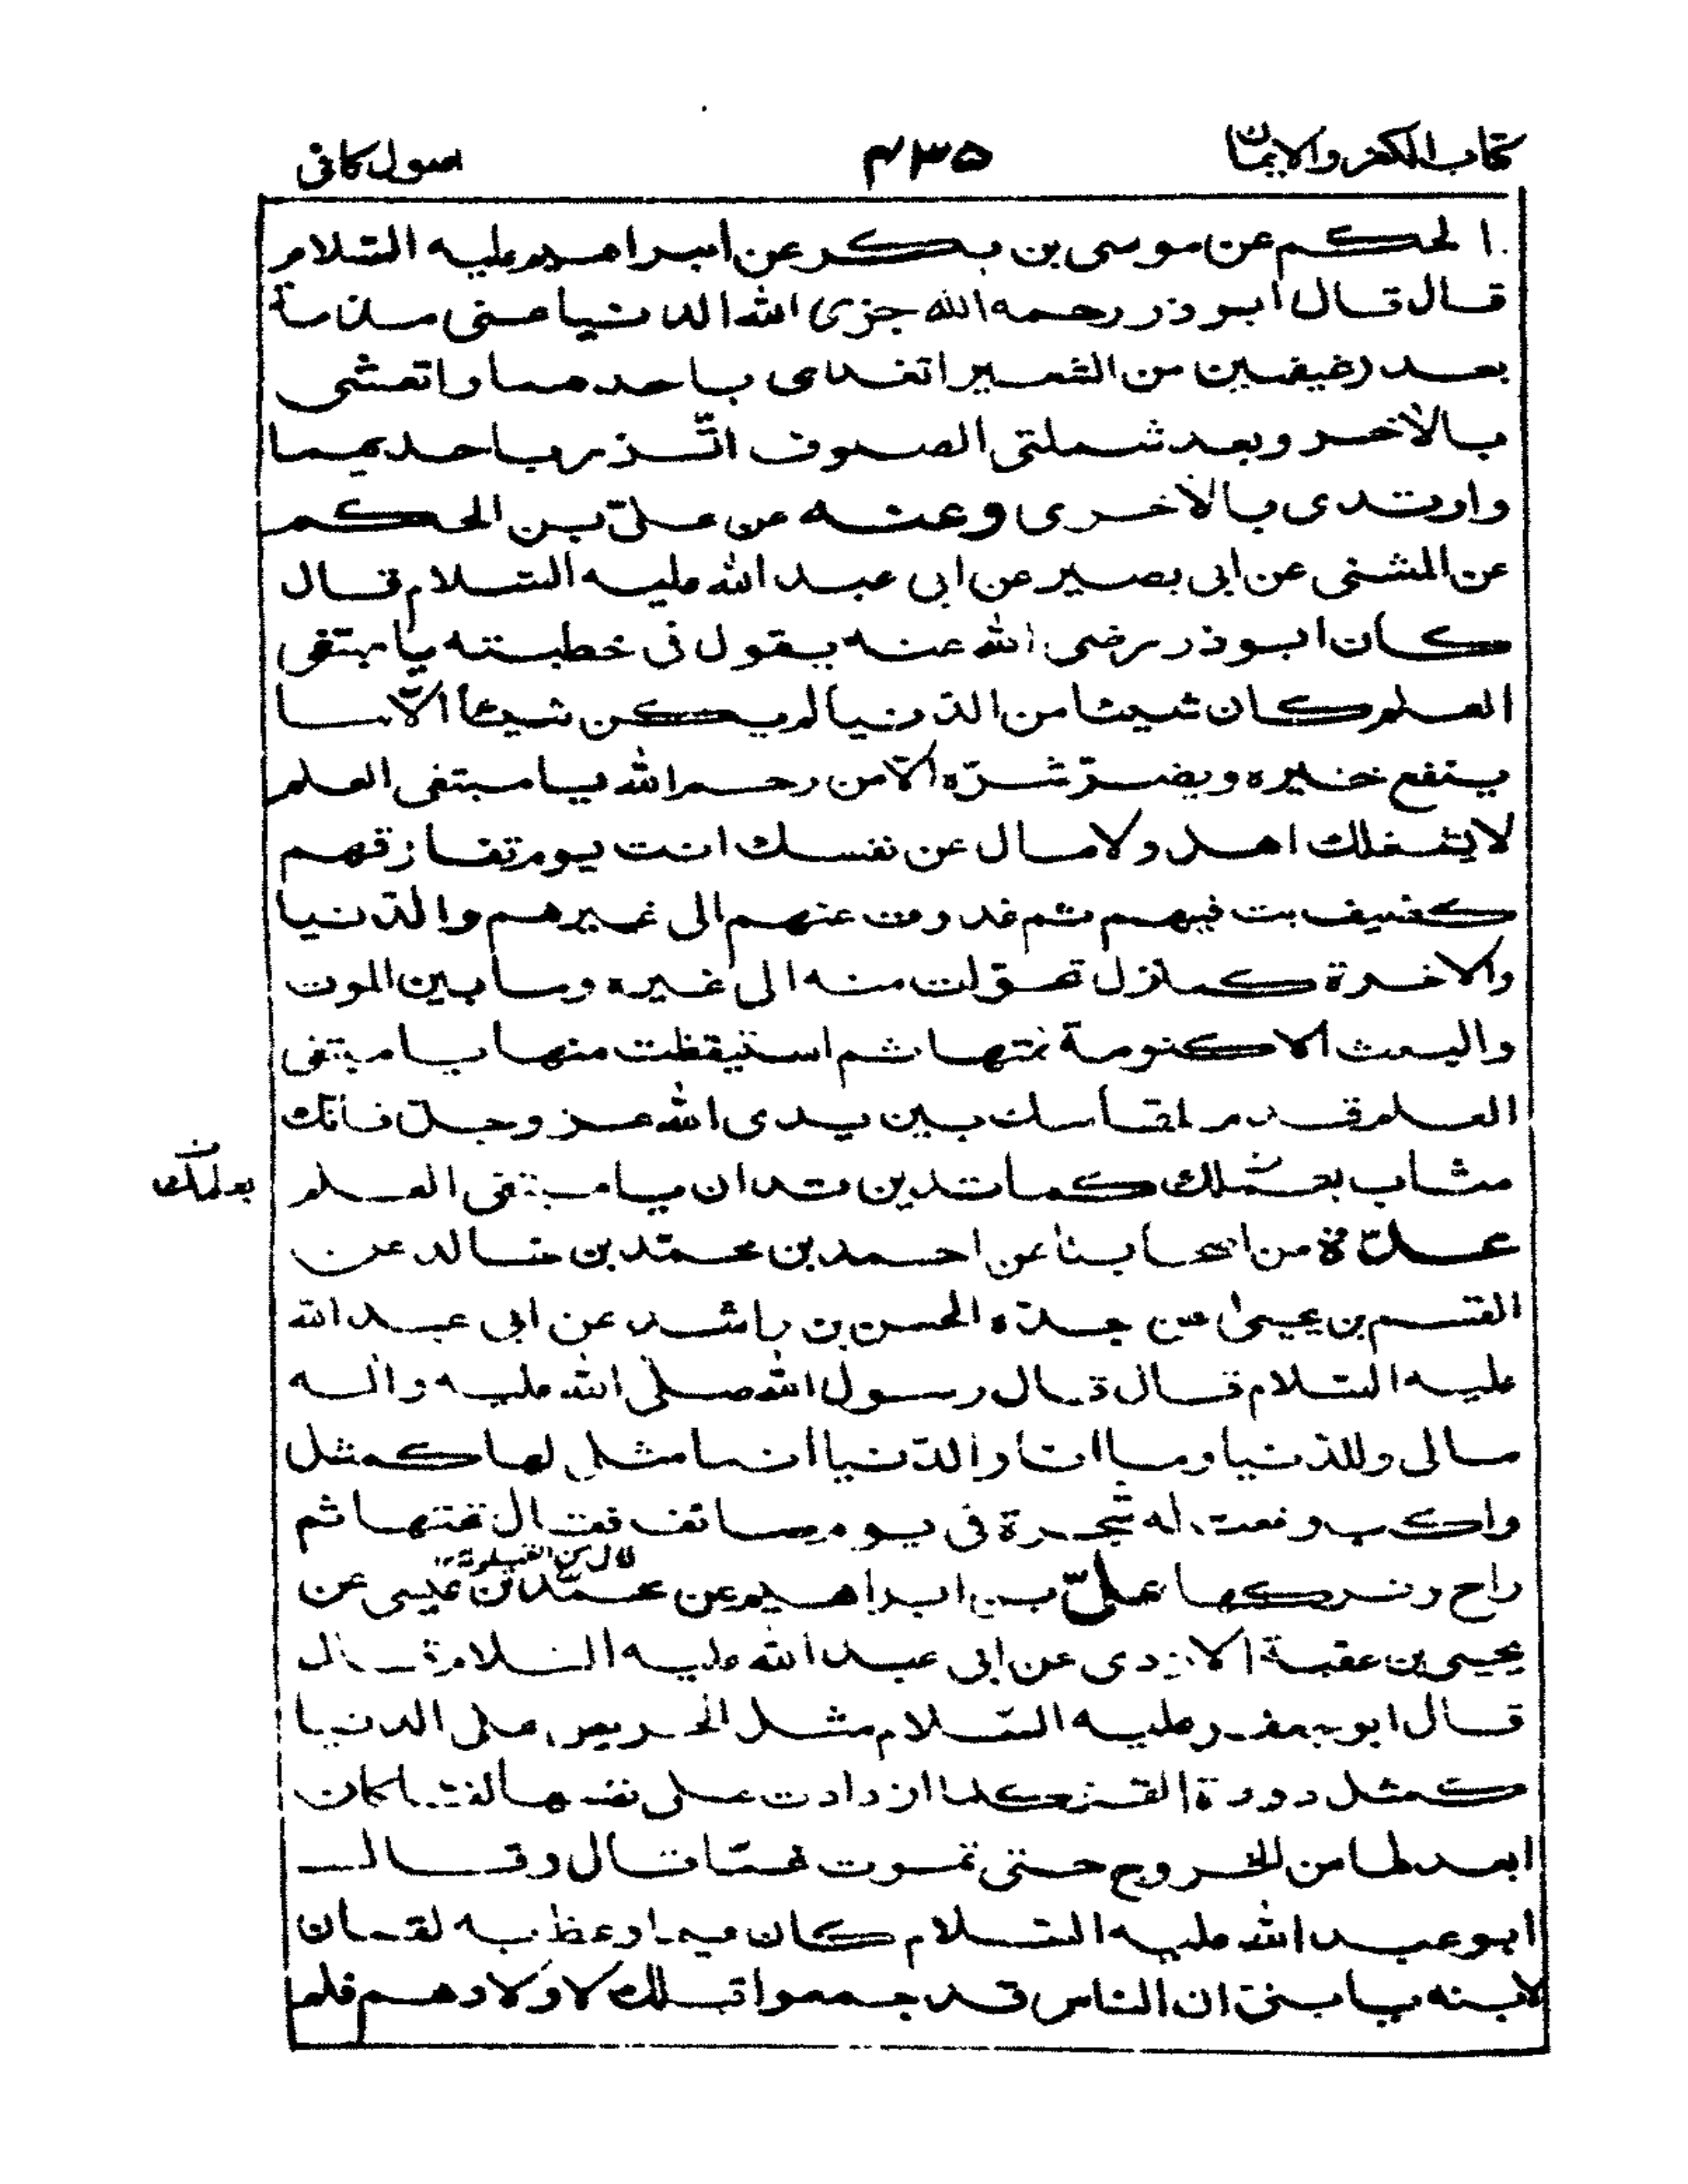 كتاب الكفر والايمان ۴۳۵ اصول كافى
الحكم عن موسى بن بكر عن ابراهيم عليه السّلام
قال قال ابوذر رحمه الله جزى الله الدنيا عنى مذمة
بعد رغيفين من الشعير اتغدى باحدهما واتعشى
بالأخر وبعد شملتى الصوف اتّزر باحديهما
وارتدى بالأخرى وعنه عن علىّ بن الحكم
عن المثنى عن ابى بصير عن ابى عبد الله عليه السّلام قال
كان ابوذر رضى الله عنه يقول فى خطبته يا مبتغى
العلم كان شيئا من الدّنيا لم يكن شيئا الّا ما
ينفع خيره ويضرّ شرّه الّا من رحم الله يا مبتغى العلم
لا يشغلك اهل ولا مال عن نفسك انت يوم تفارقهم
كضيف بت فيهم ثم غدوت عنهم الى غيرهم والدّنيا
والاخرة كمنزل تحوّلت منه الى غيره وما بين الموت
والبعث الا كنومة نمتها ثم استيقظت منها يا مبتغى
العلم قدم لمقامك بين يدى الله عز وجلّ فانّك
مثاب بعملك كما تدين تدان يا مبتغى العلم
بعلمك ن
عدّة من اصحابنا عن احمد بن محمّد بن خالد عن
القسم بن يحيى عن جدّه الحسن بن راشد عن ابى عبد الله
عليه السّلام قال قال رسول الله صلّى الله عليه واله
مالى وللدّنيا وما انا والدّنيا انما مثلى لها كمثل
راكب رفعت له شجرة فى يوم صائف فقال تحتها ثم
قال من القيلولة
راح وتركها علىّ بن ابراهيم عن محمّد بن عيسى عن
يحيى بن عقبة الازدى عن ابى عبد الله عليه السلام قال
قال ابو جعفر عليه السّلام مثل الحريص على الدنيا
كمثل دودة القز كلما ازدادت على نفسها لفّا كان
ابعد لها من الخروج حتى تموت غمّا قال وقال
ابو عبد الله عليه السّلام كان فيما وعظ به لقمان
لابنه يا بنىّ ان الناس قد جمعوا قبلك لاولادهم فلم